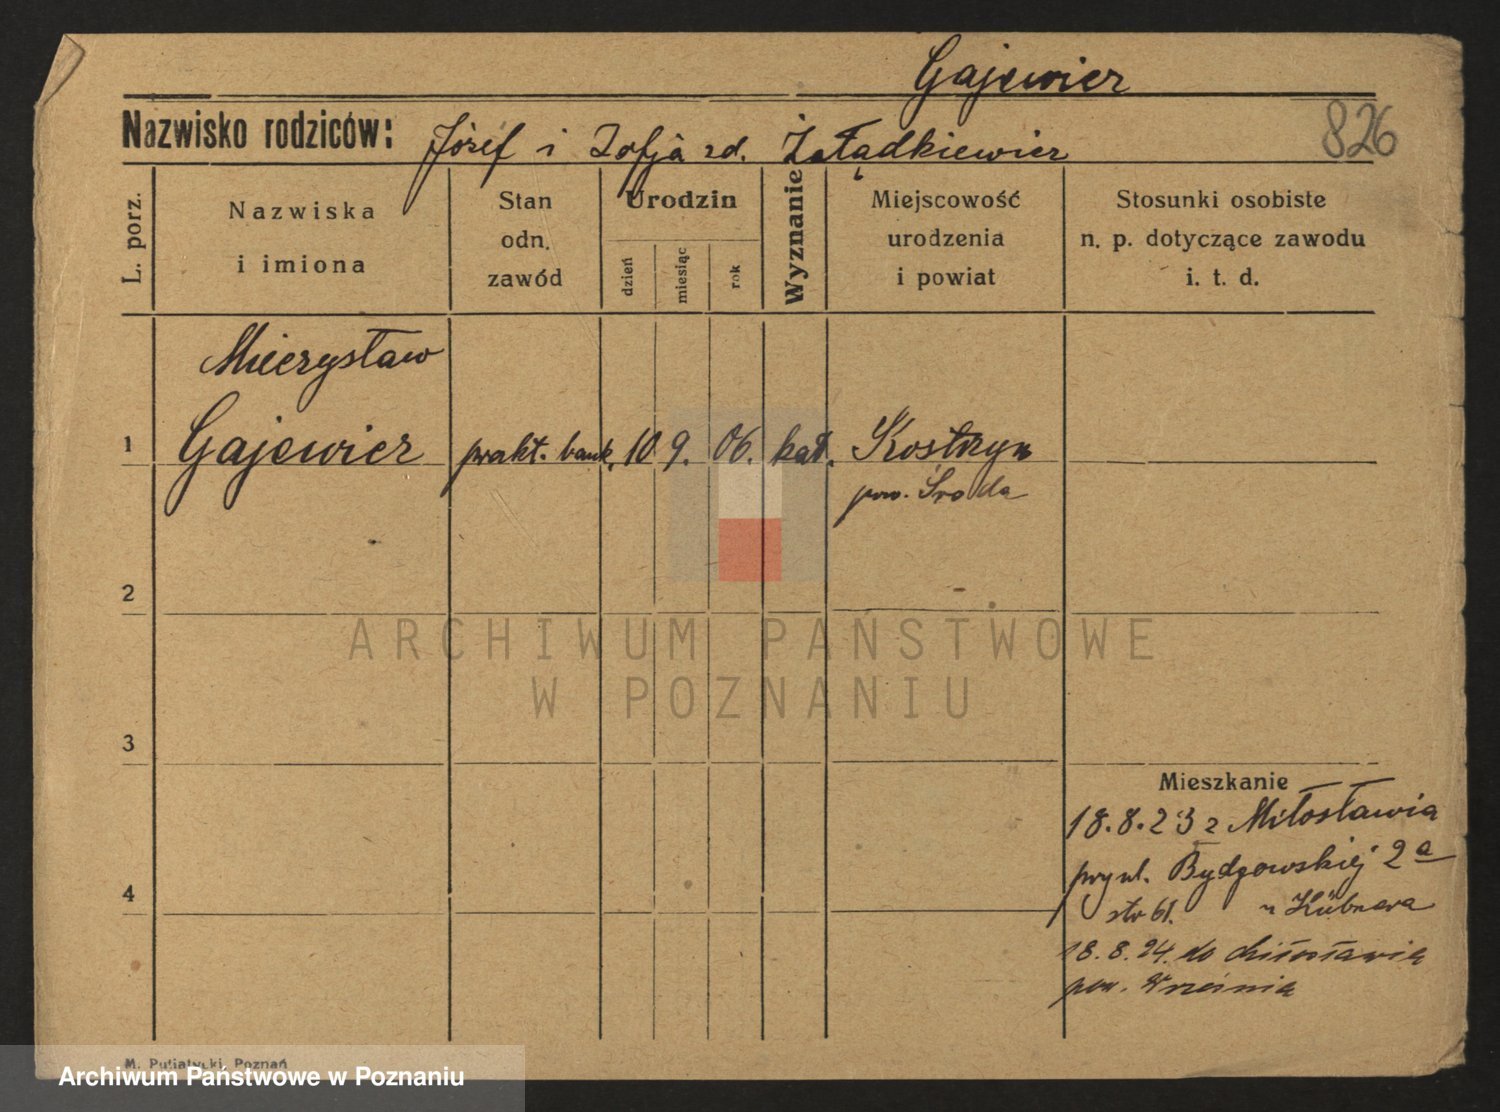 Gajewicz
Nazwisko rodziców: Józef i Zofja zd. Żołądkiewicz
826
L. porz.
Nazwiska
i imiona
Stan
odn.
zawód
Urodzin
dzień
miesiąc
rok
Wyznanie
Miejscowość
urodzenia
i powiat
Stosunki osobiste
n. p. dotyczące zawodu
i. t. d.
Mieczysław
1 Gajewicz prakt. bank. 10 9. 06. kat. Kostrzyn
pow. Środa
2
ARCHIWUM PAŃSTWOWE
W POZNANIU
3
Mieszkanie
18.8.23 z Miłosławia
przy ul. Bydgowskiej 2a
4
str 61. u Hübnera
18.8.24. do Miłosławia
pow. Września
M. Putiatycki, Poznań
Archiwum Państwowe w Poznaniu